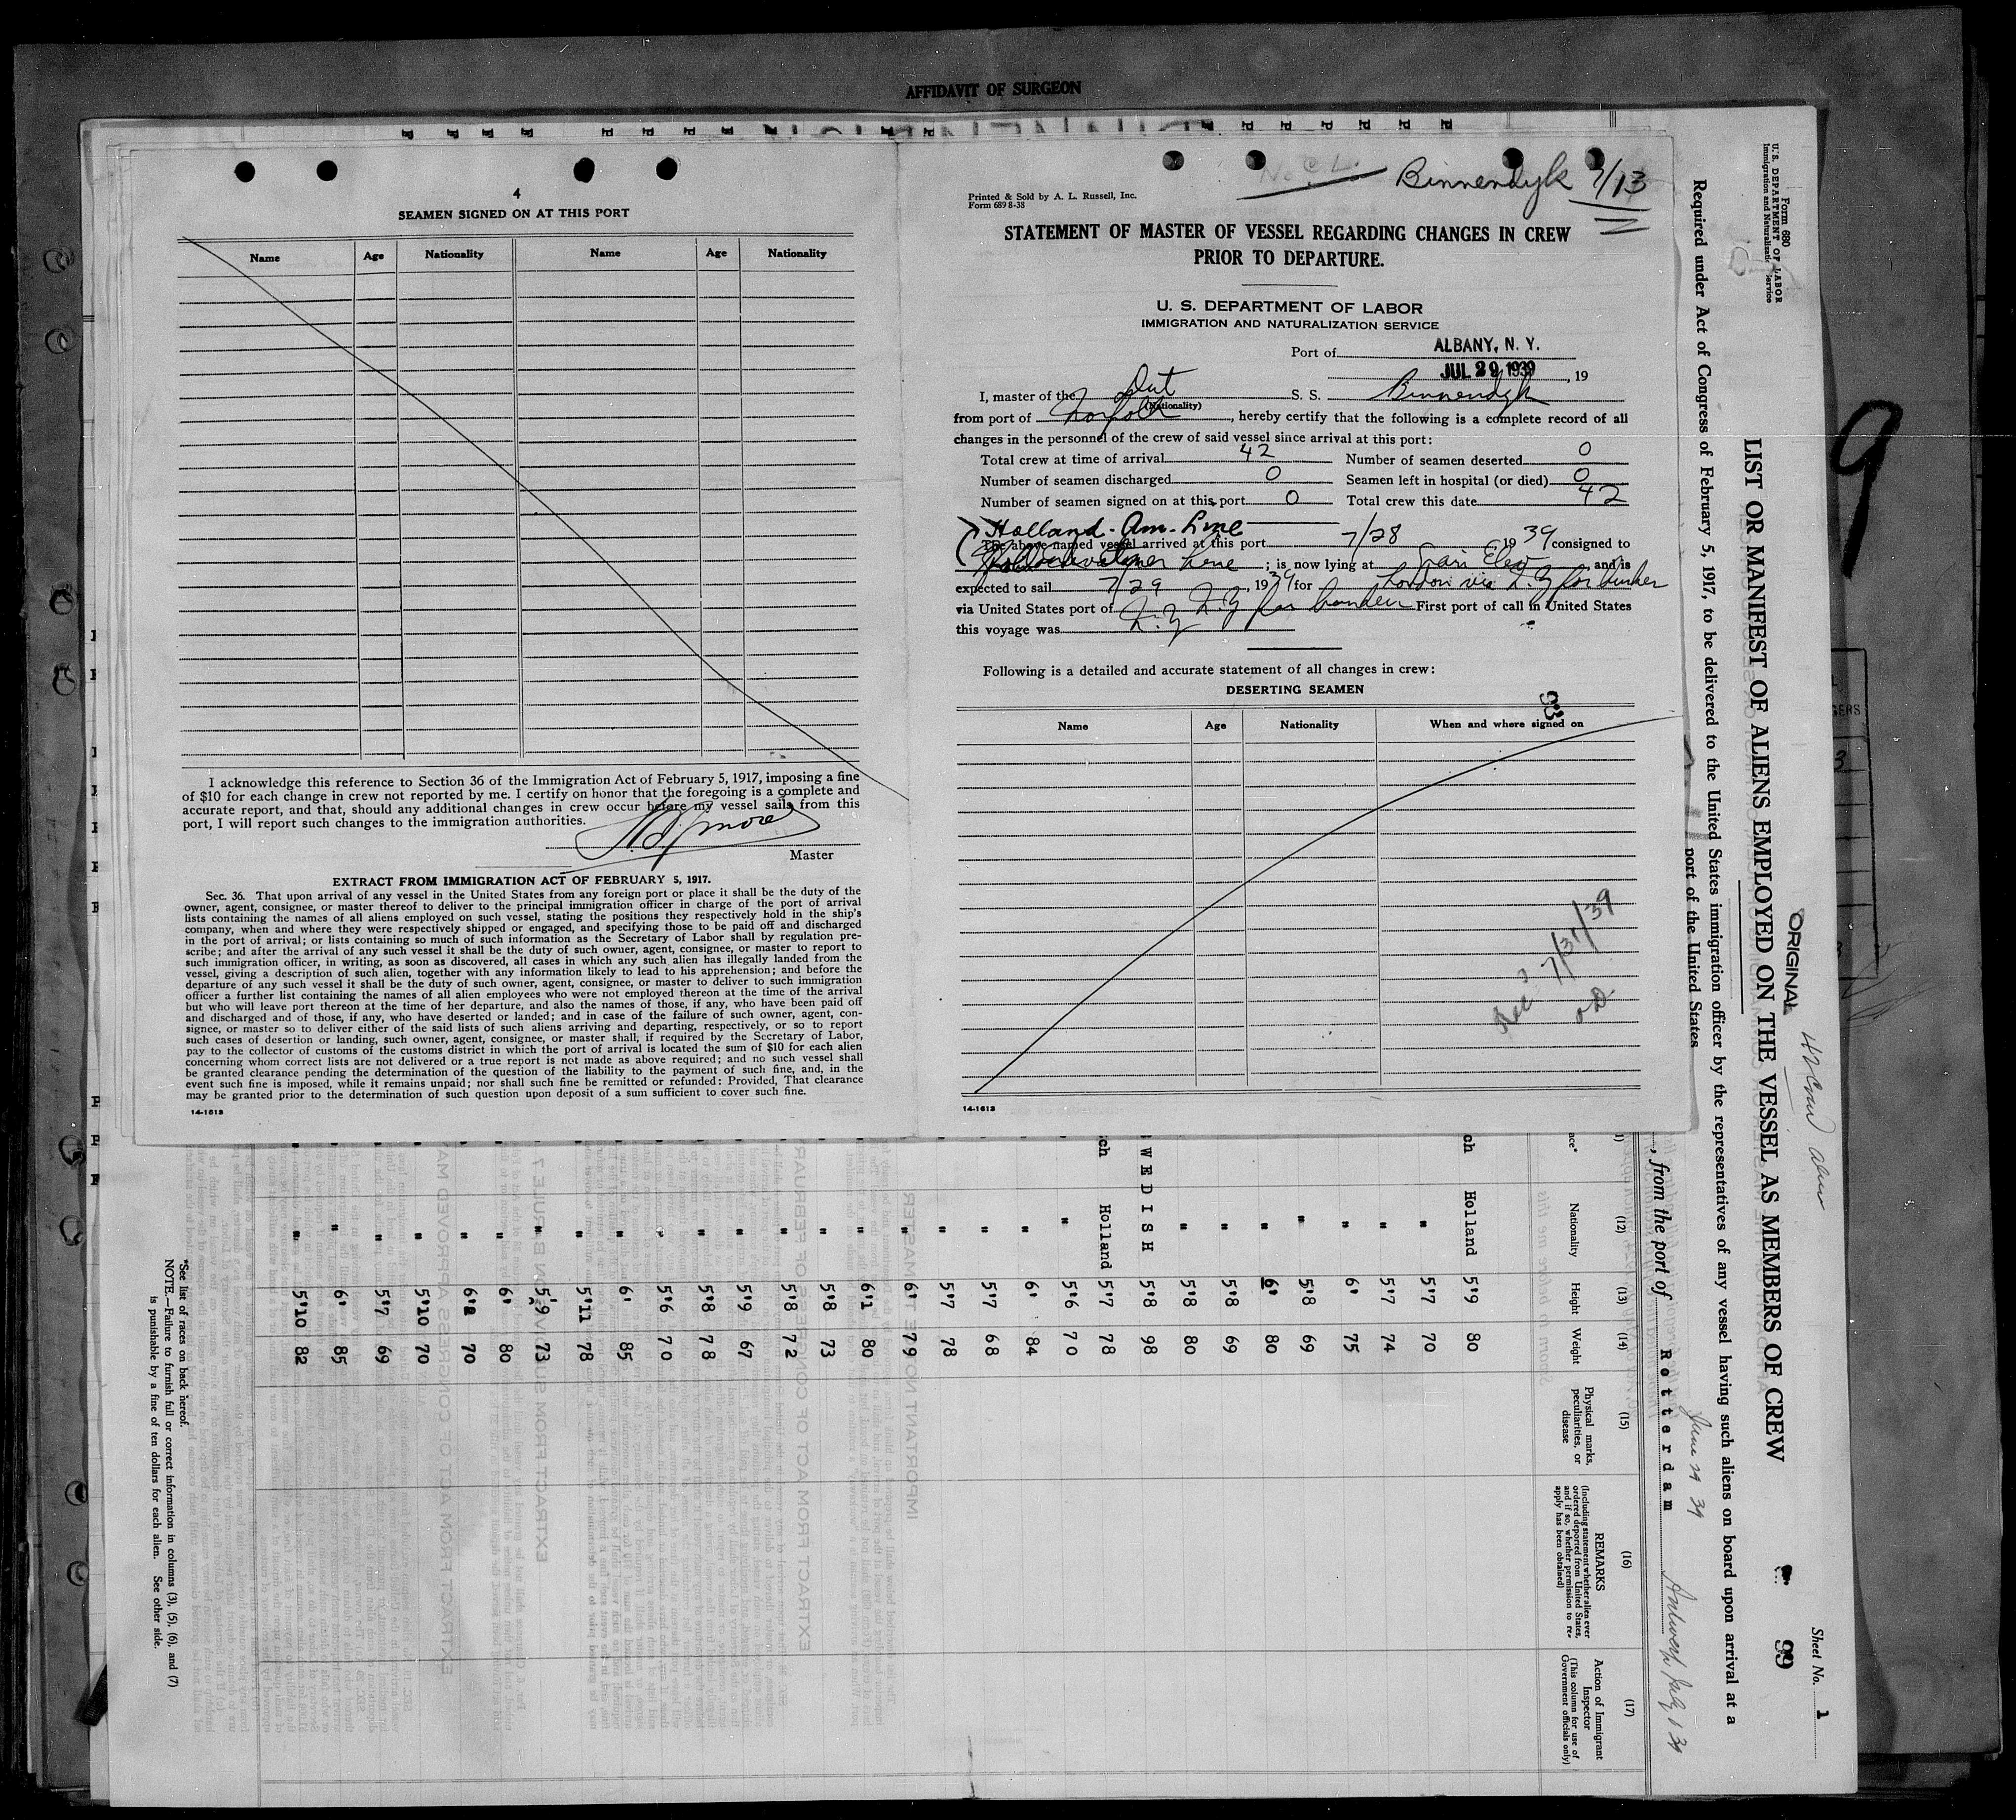 AFFIDAVIT OF SURGEON
4
SEAMEN SIGNED ON AT THIS PORT
Name Age Nationality Name Age Nationality
I acknowledge this reference to Section 36 of the Immigration Act of February 5, 1917, imposing a fine
of $10 for each change in crew not reported by me. I certify on honor that the foregoing is a complete and
accurate report, and that, should any additional changes in crew occur before my vessel sails from this
port, I will report such changes to the immigration authorities.
Master
EXTRACT FROM IMMIGRATION ACT OF FEBRUARY 5, 1917.
Sec. 36. That upon arrival of any vessel in the United States from any foreign port or place it shall be the duty of the
owner, agent, consignee, or master thereof to deliver to the principal immigration officer in charge of the port of arrival
lists containing the names of all aliens employed on such vessel, stating the positions they respectively hold in the ship's
company, when and where they were respectively shipped or engaged, and specifying those to be paid off and discharged
in the port of arrival; or lists containing so much of such information as the Secretary of Labor shall by regulation pre-
scribe; and after the arrival of any such vessel it shall be the duty of such owner, agent, consignee, or master to report to
such immigration officer, in writing, as soon as discovered, all cases in which any such alien has illegally landed from the
vessel, giving a description of such alien, together with any information likely to lead to his apprehension; and before the
departure of any such vessel it shall be the duty of such owner, agent, consignee, or master to deliver to such immigration
officer a further list containing the names of all alien employees who were not employed thereon at the time of the arrival
but who will leave port thereon at the time of her departure, and also the names of those, if any, who have been paid off
and discharged and of those, if any, who have deserted or landed; and in case of the failure of such owner, agent, con-
signee, or master so to deliver either of the said lists of such aliens arriving and departing, respectively, or so to report
such cases of desertion or landing, such owner, agent, consignee, or master shall, if required by the Secretary of Labor,
pay to the collector of customs of the customs district in which the port of arrival is located the sum of $10 for each alien
concerning whom correct lists are not delivered or a true report is not made as above required; and no such vessel shall
be granted clearance pending the determination of the question of the liability to the payment of such fine, and, in the
event such fine is imposed, while it remains unpaid; nor shall such fine be remitted or refunded: Provided, That clearance
may be granted prior to the determination of such question upon deposit of a sum sufficient to cover such fine.
14-1613
Binnendyk 7/13
Printed & Sold by A. L. Russell, Inc.
Form 689 8-38
STATEMENT OF MASTER OF VESSEL REGARDING CHANGES IN CREW
PRIOR TO DEPARTURE.
U. S. DEPARTMENT OF LABOR
IMMIGRATION AND NATURALIZATION SERVICE
Port of ALBANY, N. Y.
JUL 29 1939, 19
I, master of the Dut S. S. Binnendyk
(Nationality)
from port of Norfolk, hereby certify that the following is a complete record of all
changes in the personnel of the crew of said vessel since arrival at this port:
Total crew at time of arrival 42 Number of seamen deserted 0
Number of seamen discharged 0 Seamen left in hospital (or died) 0
Number of seamen signed on at this port 0 Total crew this date 42
Holland-Am-Line
The above named vessel arrived at this port 7/28, 1939 consigned to
Line; is now lying at Grain Elev, and is
expected to sail 7/29, 1939 for London via N.Y for bunker
via United States port of N.Y First port of call in United States
this voyage was N.Y
Following is a detailed and accurate statement of all changes in crew:
DESERTING SEAMEN
Name Age Nationality When and where signed on
Rec 7/31/39
14-1613
Form 680
U. S. DEPARTMENT OF LABOR
Immigration and Naturalization Service
ORIGINAL
42 Crew
Sheet No. 1
LIST OR MANIFEST OF ALIENS EMPLOYED ON THE VESSEL AS MEMBERS OF CREW
99
Required under Act of Congress of February 5, 1917, to be delivered to the United States immigration officer by the representatives of any vessel having such aliens on board upon arrival at a
port of the United States
, from the port of Rotterdam June 29 39 Antwerp July 1 39
(12) (13) (14) (15) (16) (17)
Nationality Height Weight
Physical marks, peculiarities, or disease
REMARKS
(Including statement whether alien ever ordered deported from United States, and if so, whether permission to re-apply has been obtained)
Action of Immigrant Inspector
(This column for use of Government officials only)
ch Holland 5'9 80
" 5'7 70
" 5'7 74
" 6' 75
" 5'8 69
" 6' 80
" 5'8 69
" 5'8 80
WEDISH 5'8 98
ch Holland 5'7 78
" 5'6 70
" 6' 84
" 5'7 68
" 5'7 78
" 6' 79
" 6'1 80
" 5'8 73
" 5'8 72
" 5'9 67
" 5'8 78
" 5'6 70
" 6' 85
" 5'11 78
" 5'9 73
" 6' 80
" 6'8 70
" 5'10 70
" 5'7 69
" 6' 85
" 5'10 82
*See list of races on back hereof.
NOTE.—Failure to furnish full or correct information in columns (3), (5), (6), and (7)
is punishable by a fine of ten dollars for each alien. See other side.
9